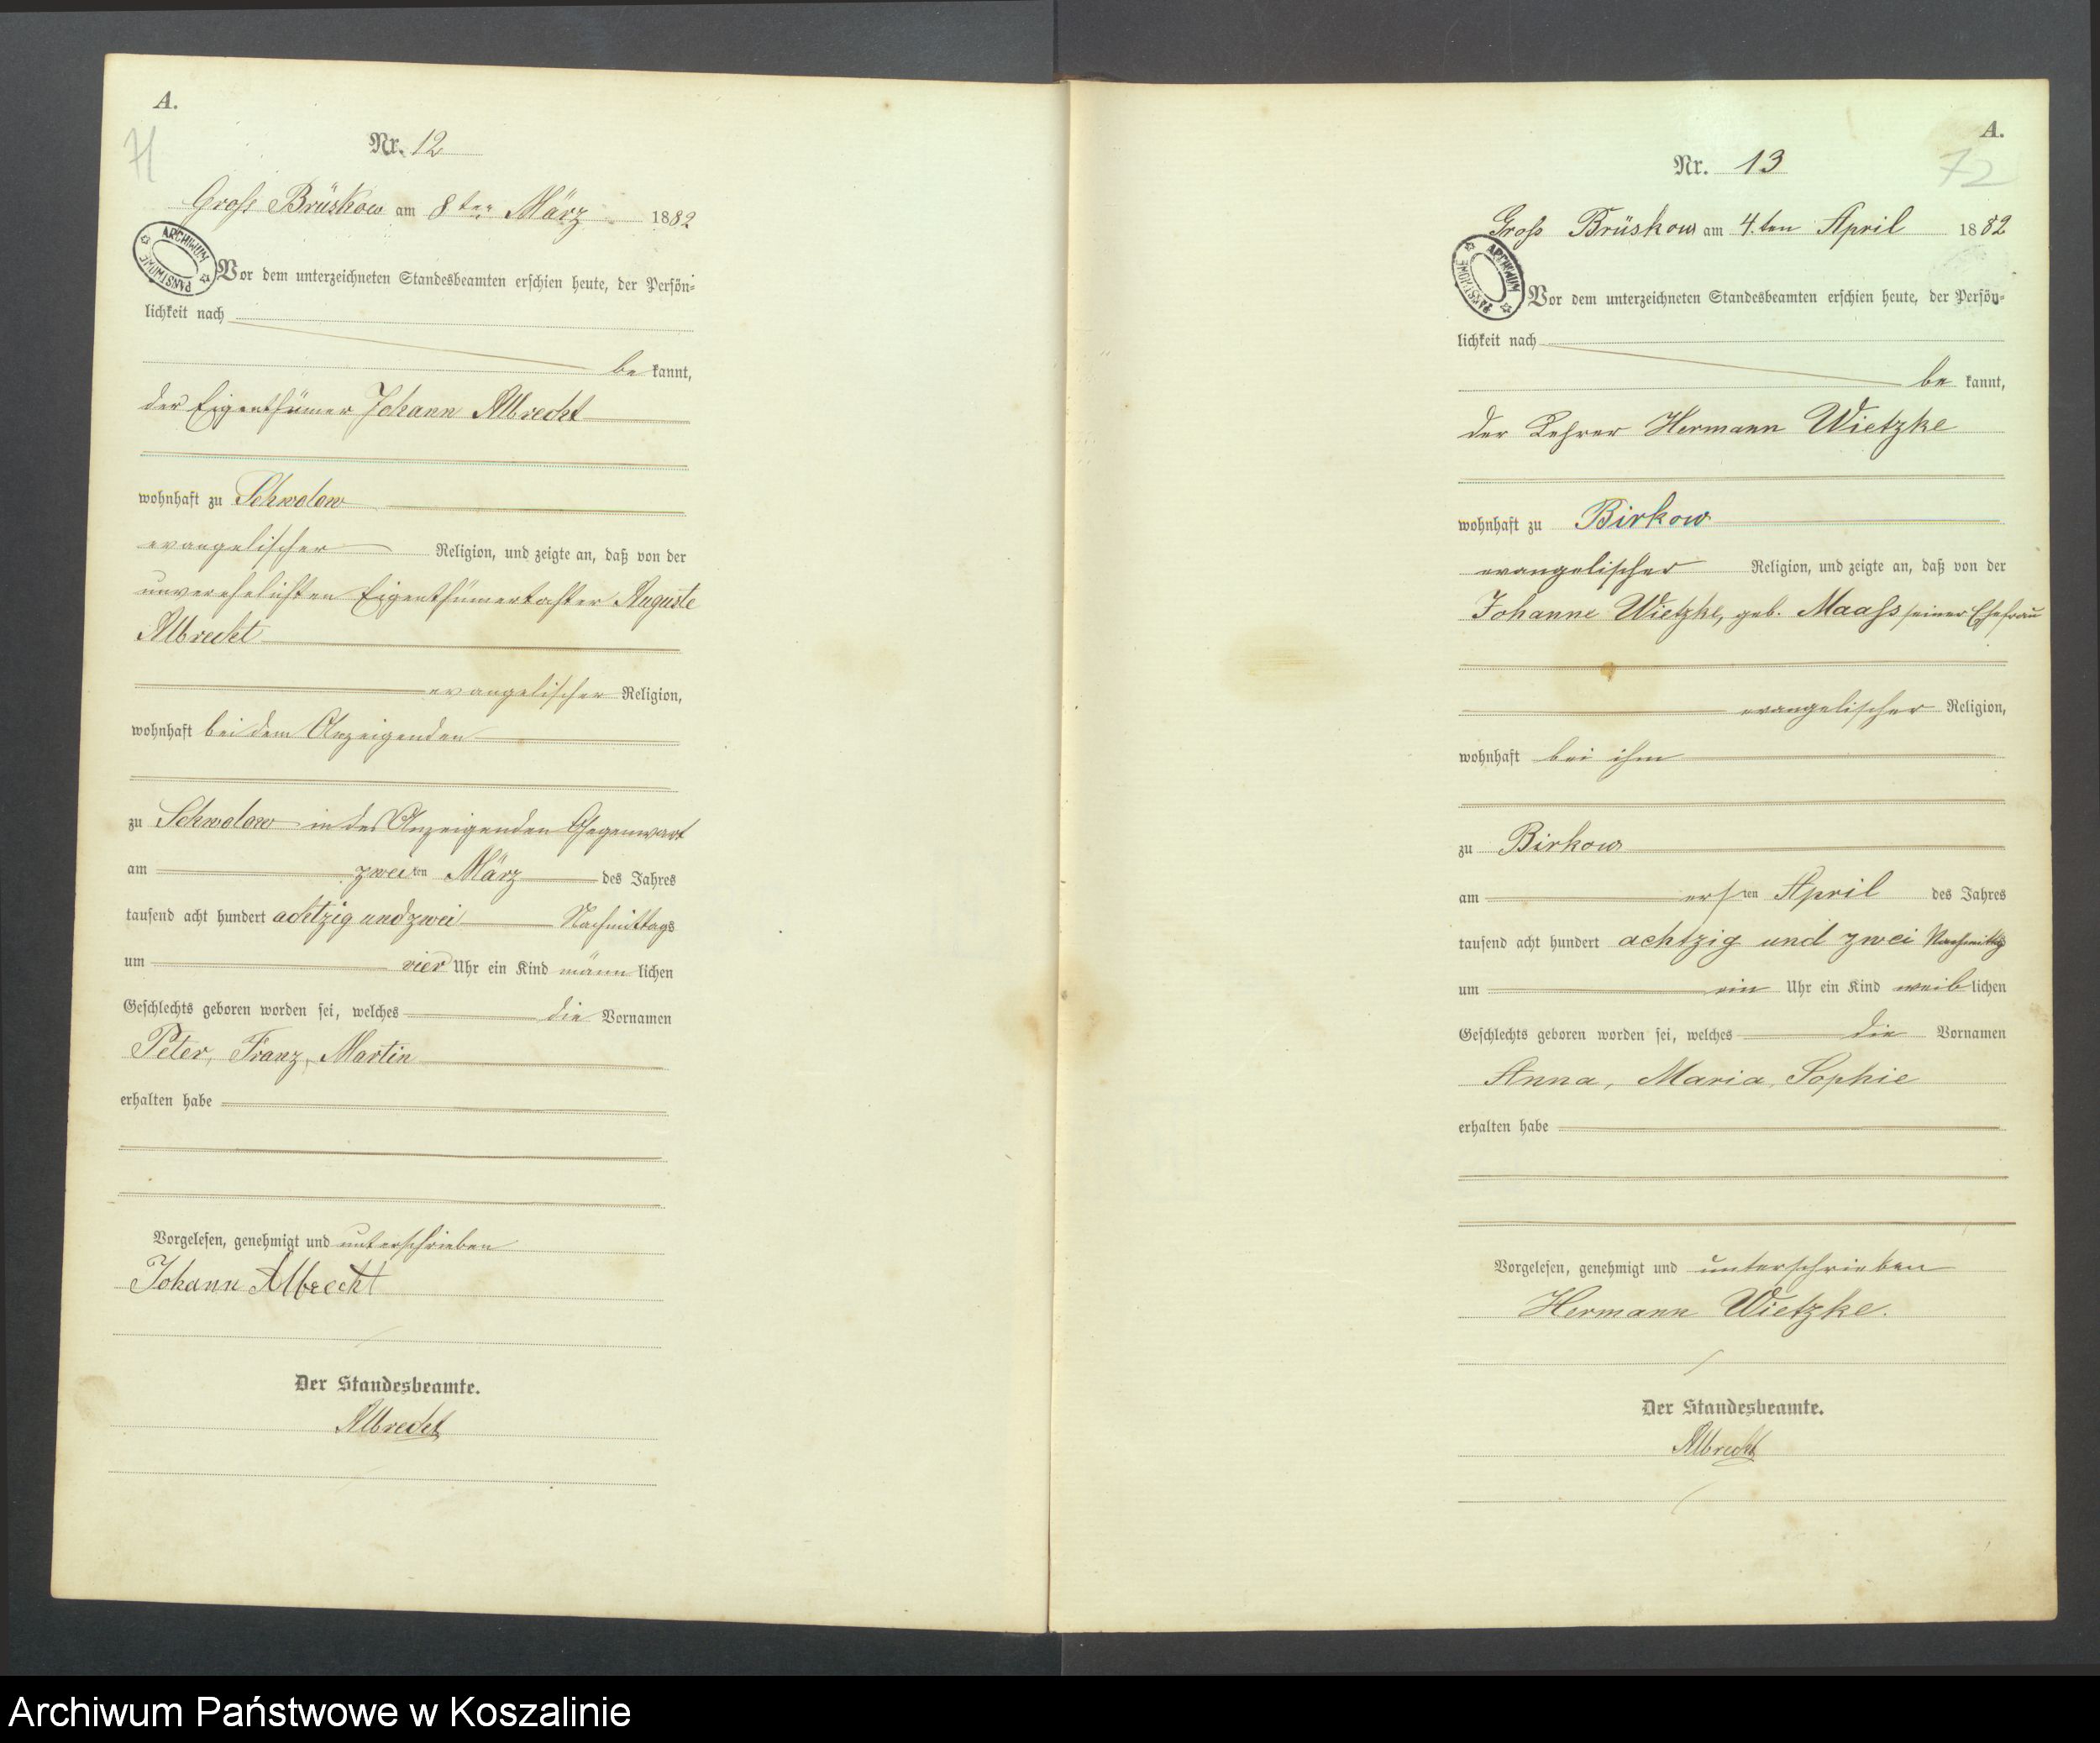 A.
71
Nr. 12
Gross Brüskow am 8ten März 1882
ARCHIWUM PAŃSTWOWE
Vor dem unterzeichneten Standesbeamten erschien heute, der Persön-
lichkeit nach
be kannt,
der Eigenthümer Johann Albrecht
wohnhaft zu Schwolow
evangelischer Religion, und zeigte an, daß von der
unverehelichten Eigenthümertochter Auguste
Albrecht
evangelischer Religion,
wohnhaft bei dem Anzeigenden
zu Schwolow in des Anzeigenden Gegenwart
am zweiten März des Jahres
tausend acht hundert achtzig und zwei Nachmittags
um vier Uhr ein Kind männlichen
Geschlechts geboren worden sei, welches die Vornamen
Peter, Franz, Martin
erhalten habe
Vorgelesen, genehmigt und unterschrieben
Johann Albrecht
Der Standesbeamte.
Albrecht
A.
72
Nr. 13
Gross Brüskow am 4.ten April 1882
ARCHIWUM PAŃSTWOWE
Vor dem unterzeichneten Standesbeamten erschien heute, der Persön-
lichkeit nach
be kannt,
der Lehrer Hermann Wietzke
wohnhaft zu Birkow
evangelischer Religion, und zeigte an, daß von der
Johanne Wietzke, geb. Maass seiner Ehefrau
evangelischer Religion,
wohnhaft bei ihm
zu Birkow
am ersten April des Jahres
tausend acht hundert achtzig und zwei Nachmittags
um ein Uhr ein Kind weiblichen
Geschlechts geboren worden sei, welches die Vornamen
Anna, Maria, Sophie
erhalten habe
Vorgelesen, genehmigt und unterschrieben
Hermann Wietzke.
Der Standesbeamte.
Albrecht
Archiwum Państwowe w Koszalinie